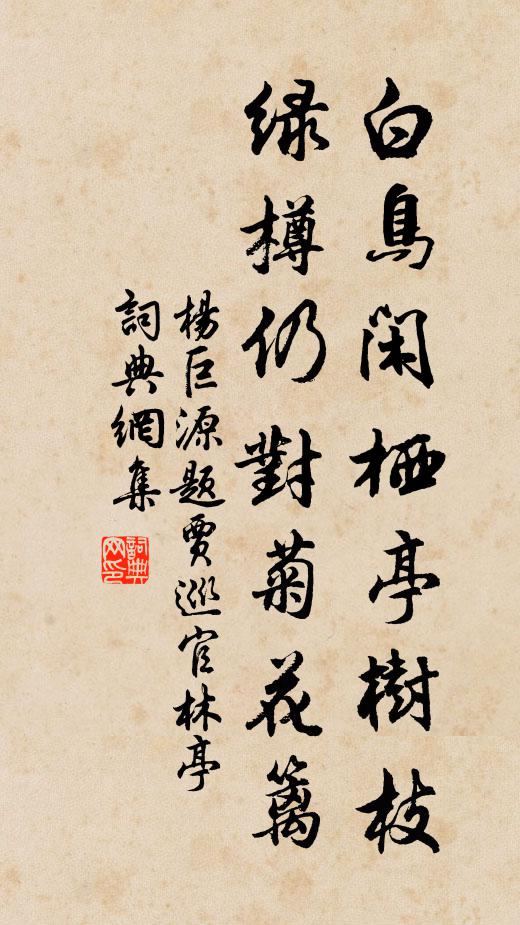 白鳥閑栖亭樹枝
綠樽仍對菊花籬
楊巨源题贾巡官林亭
詞典網集
詞典网印